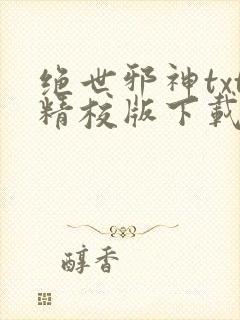 绝世邪神txt
精校版下载
醇香